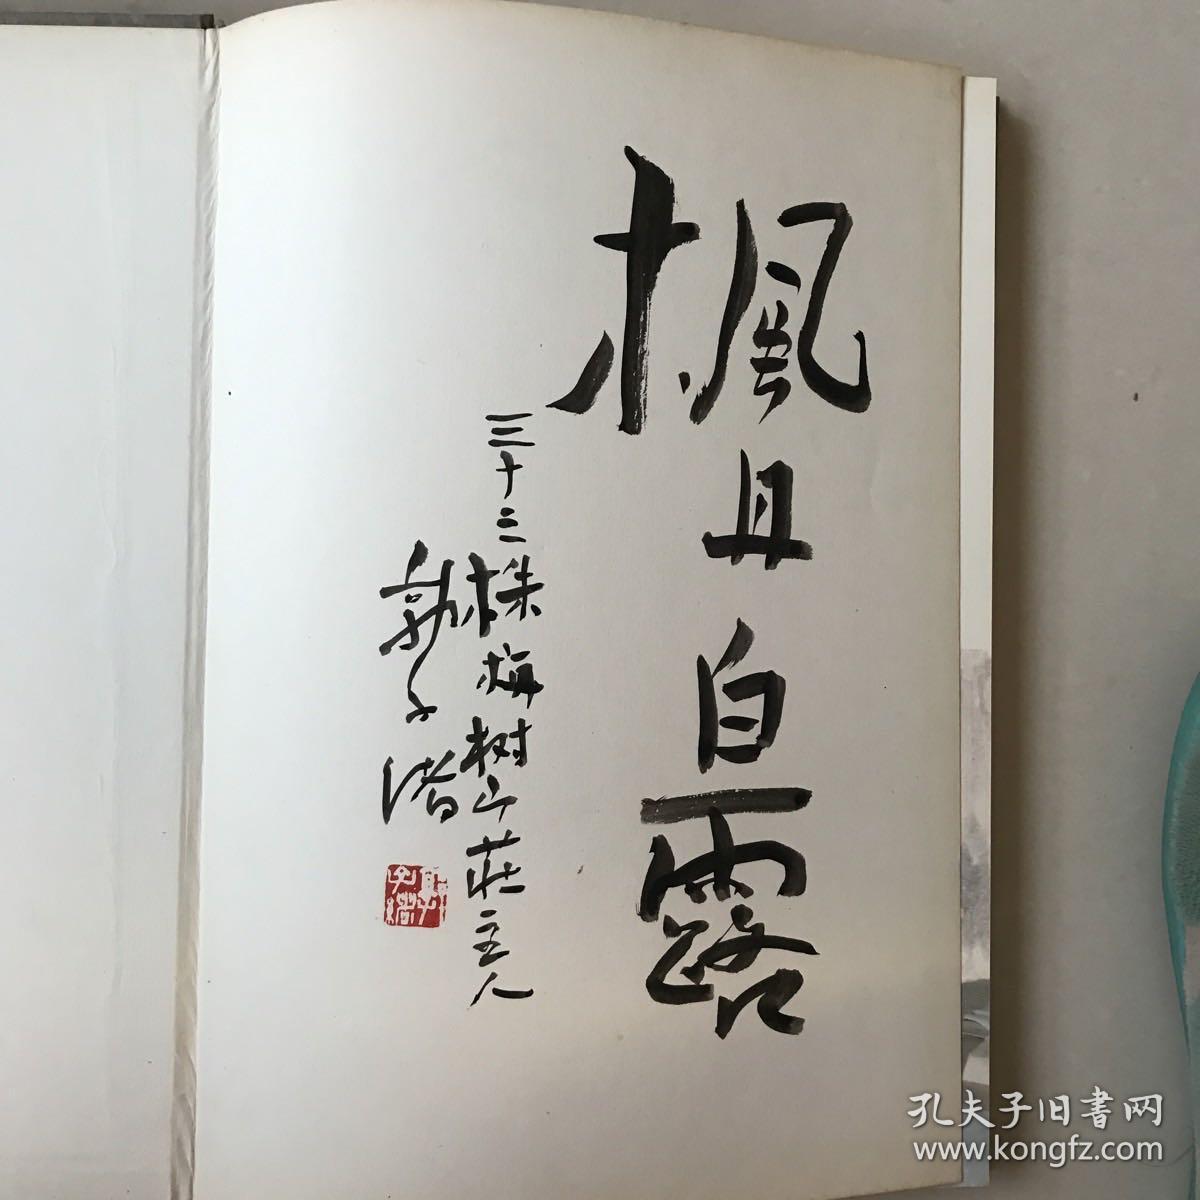 楓丹白露
三十二株梅树山莊主人
郭子渚
孔夫子旧書网
www.kongfz.com